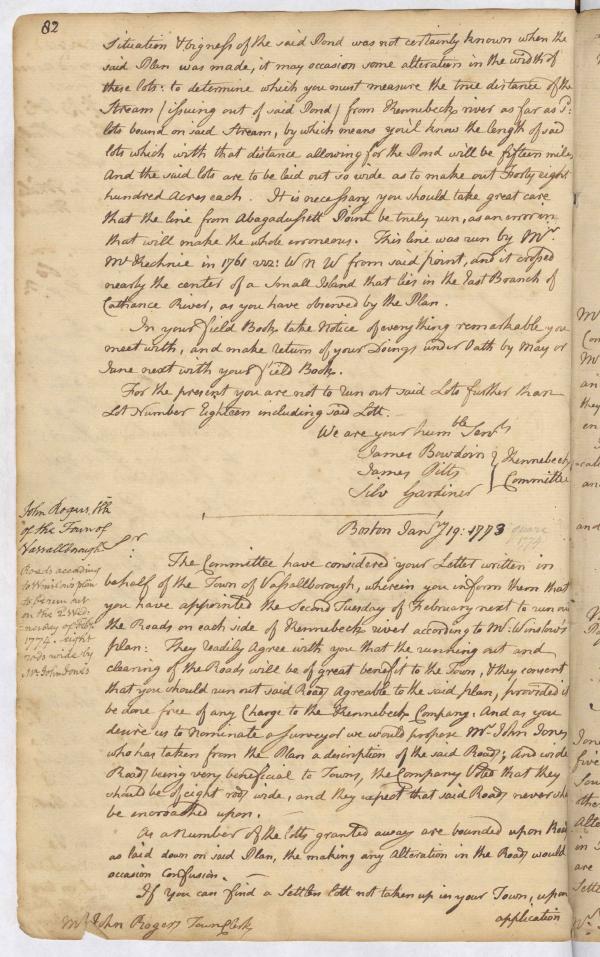 82
Situation & bigness of the said Pond was not certainly known when the
said Plan was made, it may occasion some alteration in the width of
these lots: to determine which you must measure the true distance of the
Stream (issuing out of said Pond) from Kennebeck river as far as Sd:
lots bound on said Stream, by which means you'l know the length of said
lots which with that distance allowing for the Pond will be fifteen mile,
And the said lots are to be laid out so wide as to make out Forty eight
hundred Acres each. It is necessary you should take great care
that the line from Abagadussett Point be truely run, as an error in
that will make the whole erroneous. This line was run by Mr.
McKechnie in 1761 viz: W N W from said point, and it crossed
nearly the center of a Small Island that lies in the East Branch of
Cathance River, as you have observed by the Plan.
In your field Book take Notice of everything remarkable you
meet with, and make return of your Doings under Oath by May or
June next with your field Book.
For the present you are not to run out said Lots further than
Lot Number Eighteen including said Lott.
We are your humble Servts
James Bowdoin
James Pitts
Silv Gardiner
Kennebeck
Committee
Boston Jany 19: 1773
quære
1774
John Rogers Clk
of the Town of
Vassallborough
Roads according
to Winslows plan
to be run out
on the 2d Wed-
nesday of Feby
1774. eight
rods wide by
Mr John Jones
Sr:
The Committee have considered your Letter written in
behalf of the Town of Vassallborough, wherein you inform them that
you have appointed the Second Tuesday of February next to run out
the Roads on each side of Kennebeck river according to Mr. Winslow's
plan: They readily Agree with you that the running out and
clearing of the Roads will be of great benefit to the Town, & they consent
that you should run out said Road Agreable to the said plan, provided it
be done free of any Charge to the Kennebeck Company: And as you
desire us to Nominate a surveyor we would propose Mr. John Jones
who has taken from the Plan a description of the said Road; And wide
Roads being very beneficial to Towns, the Company Voted that they
should be of eight rods wide, and they expect that said Roads never sho
be encroached upon.
As a Number of the lotts granted away are bounded upon Road
as laid down on said Plan, the making any Alteration in the Roads would
occasion Confusion.
If you can find a Settlers lott not taken up in your Town, upon
application
Mr. John Rogers Town Clerk